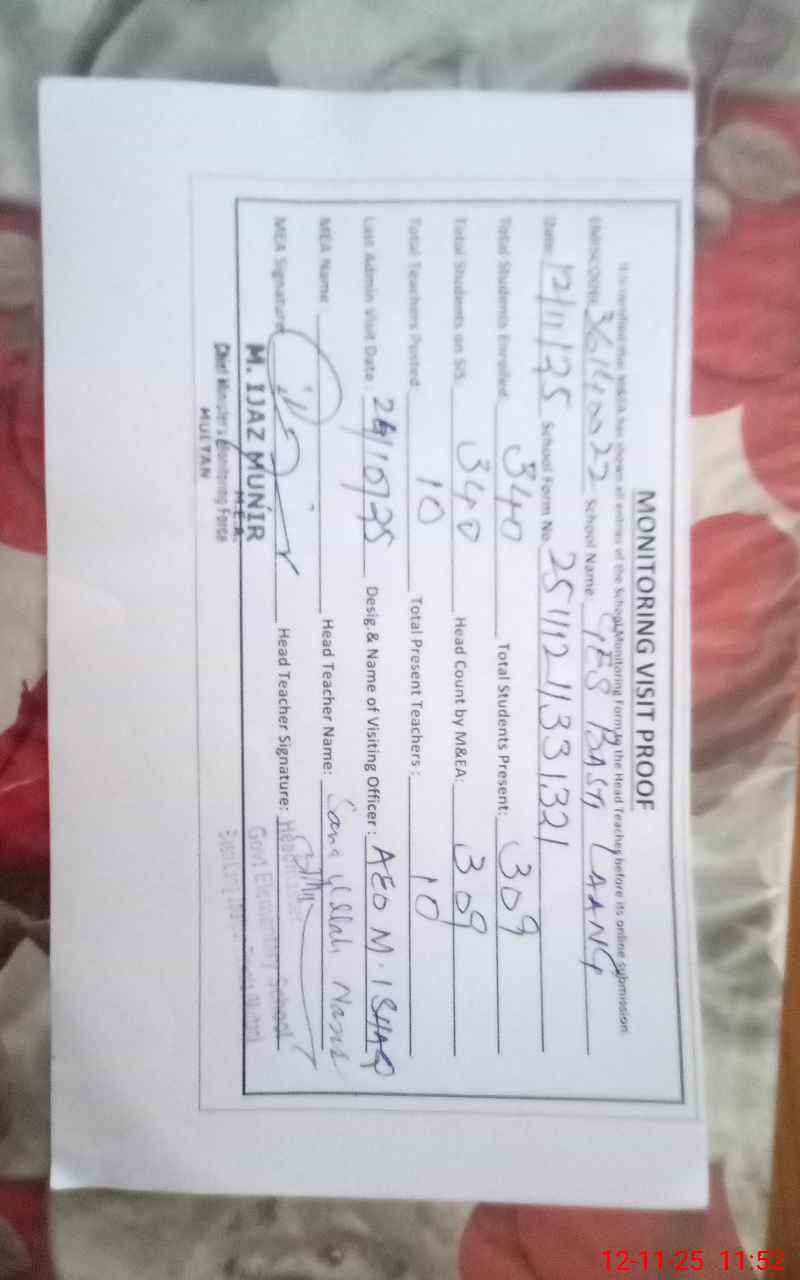 MONITORING VISIT PROOF
It is verified that M&EA has shown all entries of the School Monitoring Form to the Head Teacher before its online submission.
EMISCODE: 36140022 School Name GES BASTI LAANG
Date: 12/11/25 School Form No. 25111211331321
Total Students Enrolled 340 Total Students Present: 309
Total Students on SIS 340 Head Count by M&EA: 309
Total Teachers Posted: 10 Total Present Teachers : 10
Last Admin Visit Date : 24/10/25 Desig.& Name of Visiting Officer : AEO M. ISHAQ
MEA Name : Head Teacher Name: Sana Ullah
MEA Signature Head Teacher Signature:
M. IJAZ MUNIR
M.E.A.
Chief Minister's Monitoring Force
MULTAN
Headmaster
Govt Elementary School
12-11-25 11:52